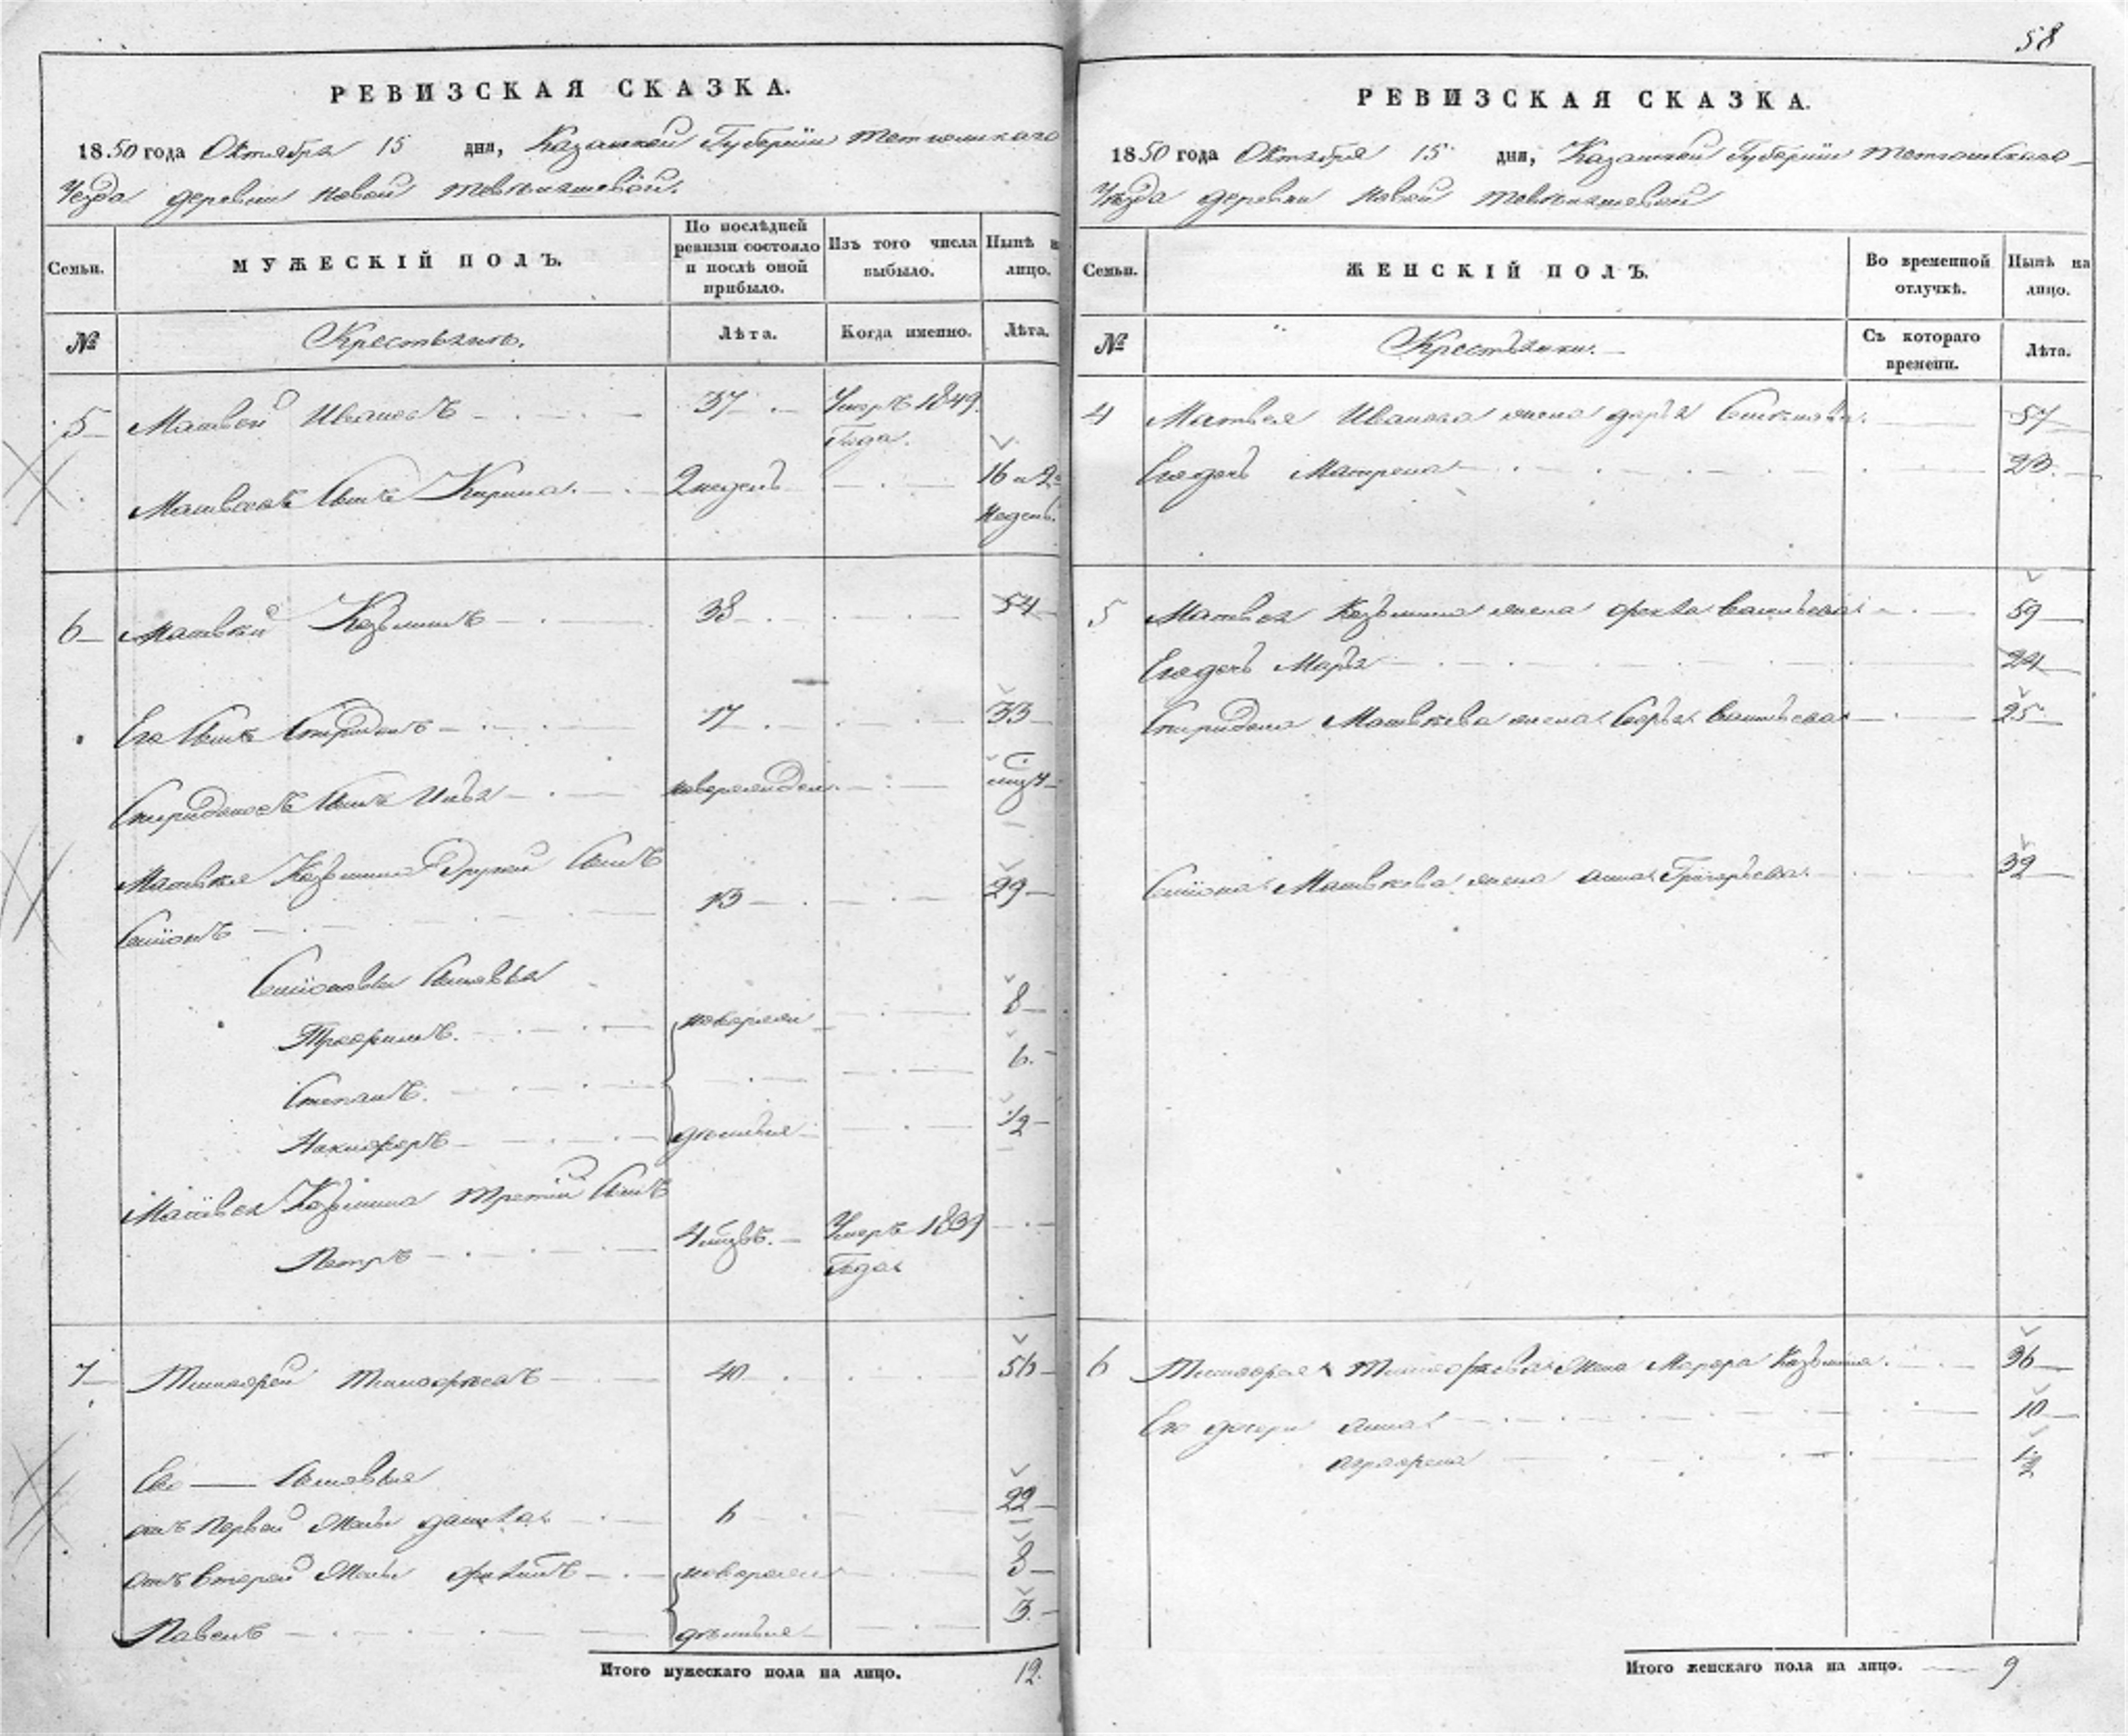 58
РЕВИЗСКАЯ СКАЗКА.
1850 года Октября 15 дня, Казанской Губернiи Тетюшскаго
Уезда деревни Новой
Семьи.
МУЖЕСКIЙ ПОЛЪ.
По послѣдней ревизiи состояло и послѣ оной прибыло.
Изъ того числа выбыло.
Нынѣ на лицо.
№
Крестьянъ.
Лѣта.
Когда именно.
Лѣта.
5 Матвей Ивановъ 37 Умеръ 1849
Года.
Матвеевъ Сынъ Кирила 2 недель 16 и 2
недель
6 Матвей Козьминъ 38 54
Его Сынъ Спиридонъ 17 33
Спиридоновъ Сынъ Илья новорожден
Матвея Козьмина Другой Сынъ
13 29
Семионъ
Семионовы Сыновья
Трофимъ новорожден 8
Степанъ 6
Никифоръ 1/2
Матвея Козьмина третiй Сынъ
Петръ Умеръ 1839
Года
7 Тимофей Тимофеевъ 40 56
Ево Сыновья
отъ Первой Жены Данила 6 22
отъ второй Жены новорожден 8
Павелъ 3
Итого мужескаго пола на лицо. 12.
РЕВИЗСКАЯ СКАЗКА.
1850 года Октября 15 дня, Казанской Губернiи Тетюшскаго
Уезда деревни Новой
Семьи.
ЖЕНСКIЙ ПОЛЪ.
Во временной отлучкѣ.
Нынѣ на лицо.
№
Крестьянки.
Съ котораго времени.
Лѣта.
4 Матвея Иванова жена Дарья 57
Матрена 23
5 Матвея Козьмина жена Фекла Васильева 59
Марья 24
Спиридона Матвеева жена Васильева 25
Семиона Матвеева жена Анна Григорьева 32
6 Тимофея Тимофеева Жена Козьмина 36
Его дочери Анна 10
Аграфена 1/2
Итого женскаго пола на лицо. 9